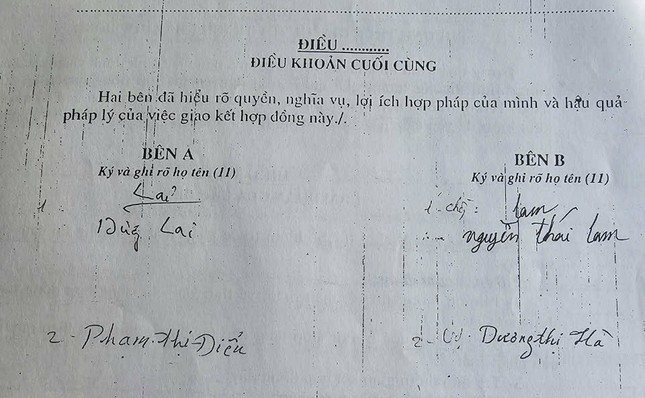 ĐIỀU ............
ĐIỀU KHOẢN CUỐI CÙNG
Hai bên đã hiểu rõ quyền, nghĩa vụ, lợi ích hợp pháp của mình và hậu quả
pháp lý của việc giao kết hợp đồng này./.
BÊN A
Ký và ghi rõ họ tên (11)
1 Lai
Lai
2 - Phạm Thị Diểu
BÊN B
Ký và ghi rõ họ tên (11)
1 - chồng: lam
nguyễn thái lam
2 - Vợ. Dương thị Hà